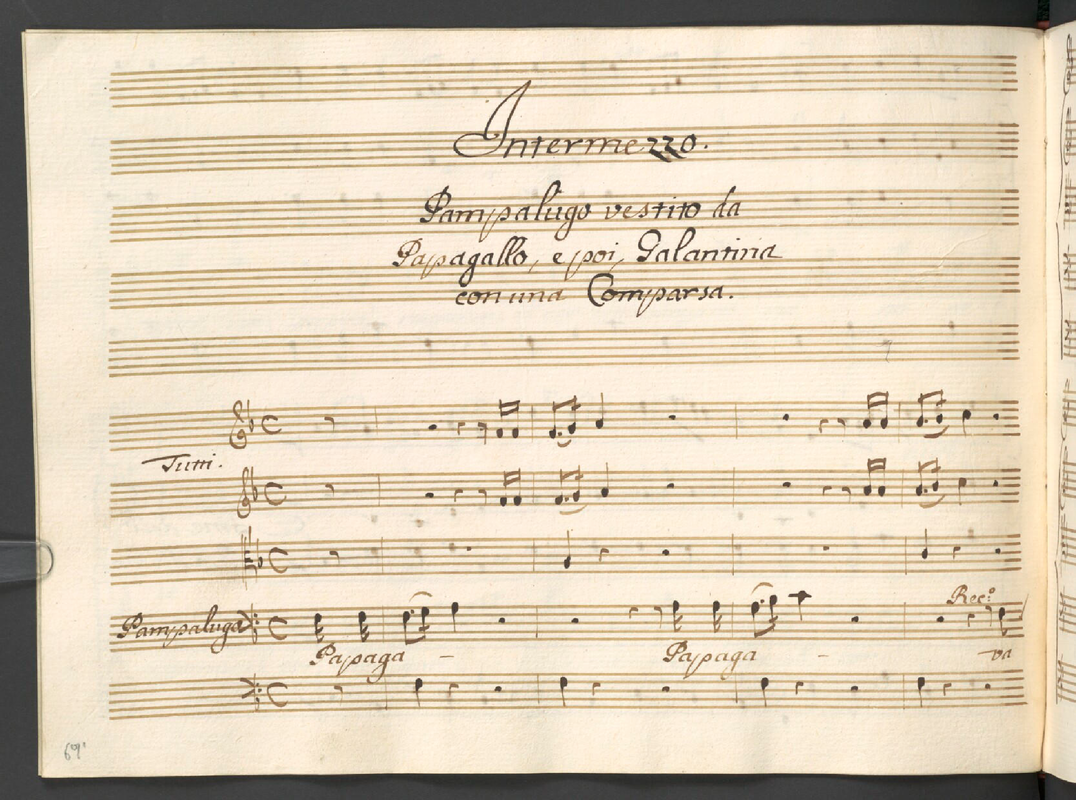 Intermezzo.
Pampalugo vestito da
Papagallo, e poi, Galantina
con una Comparsa.
Tutti.
Rec.o
Pampaluga
Papaga - Papaga - va
69'